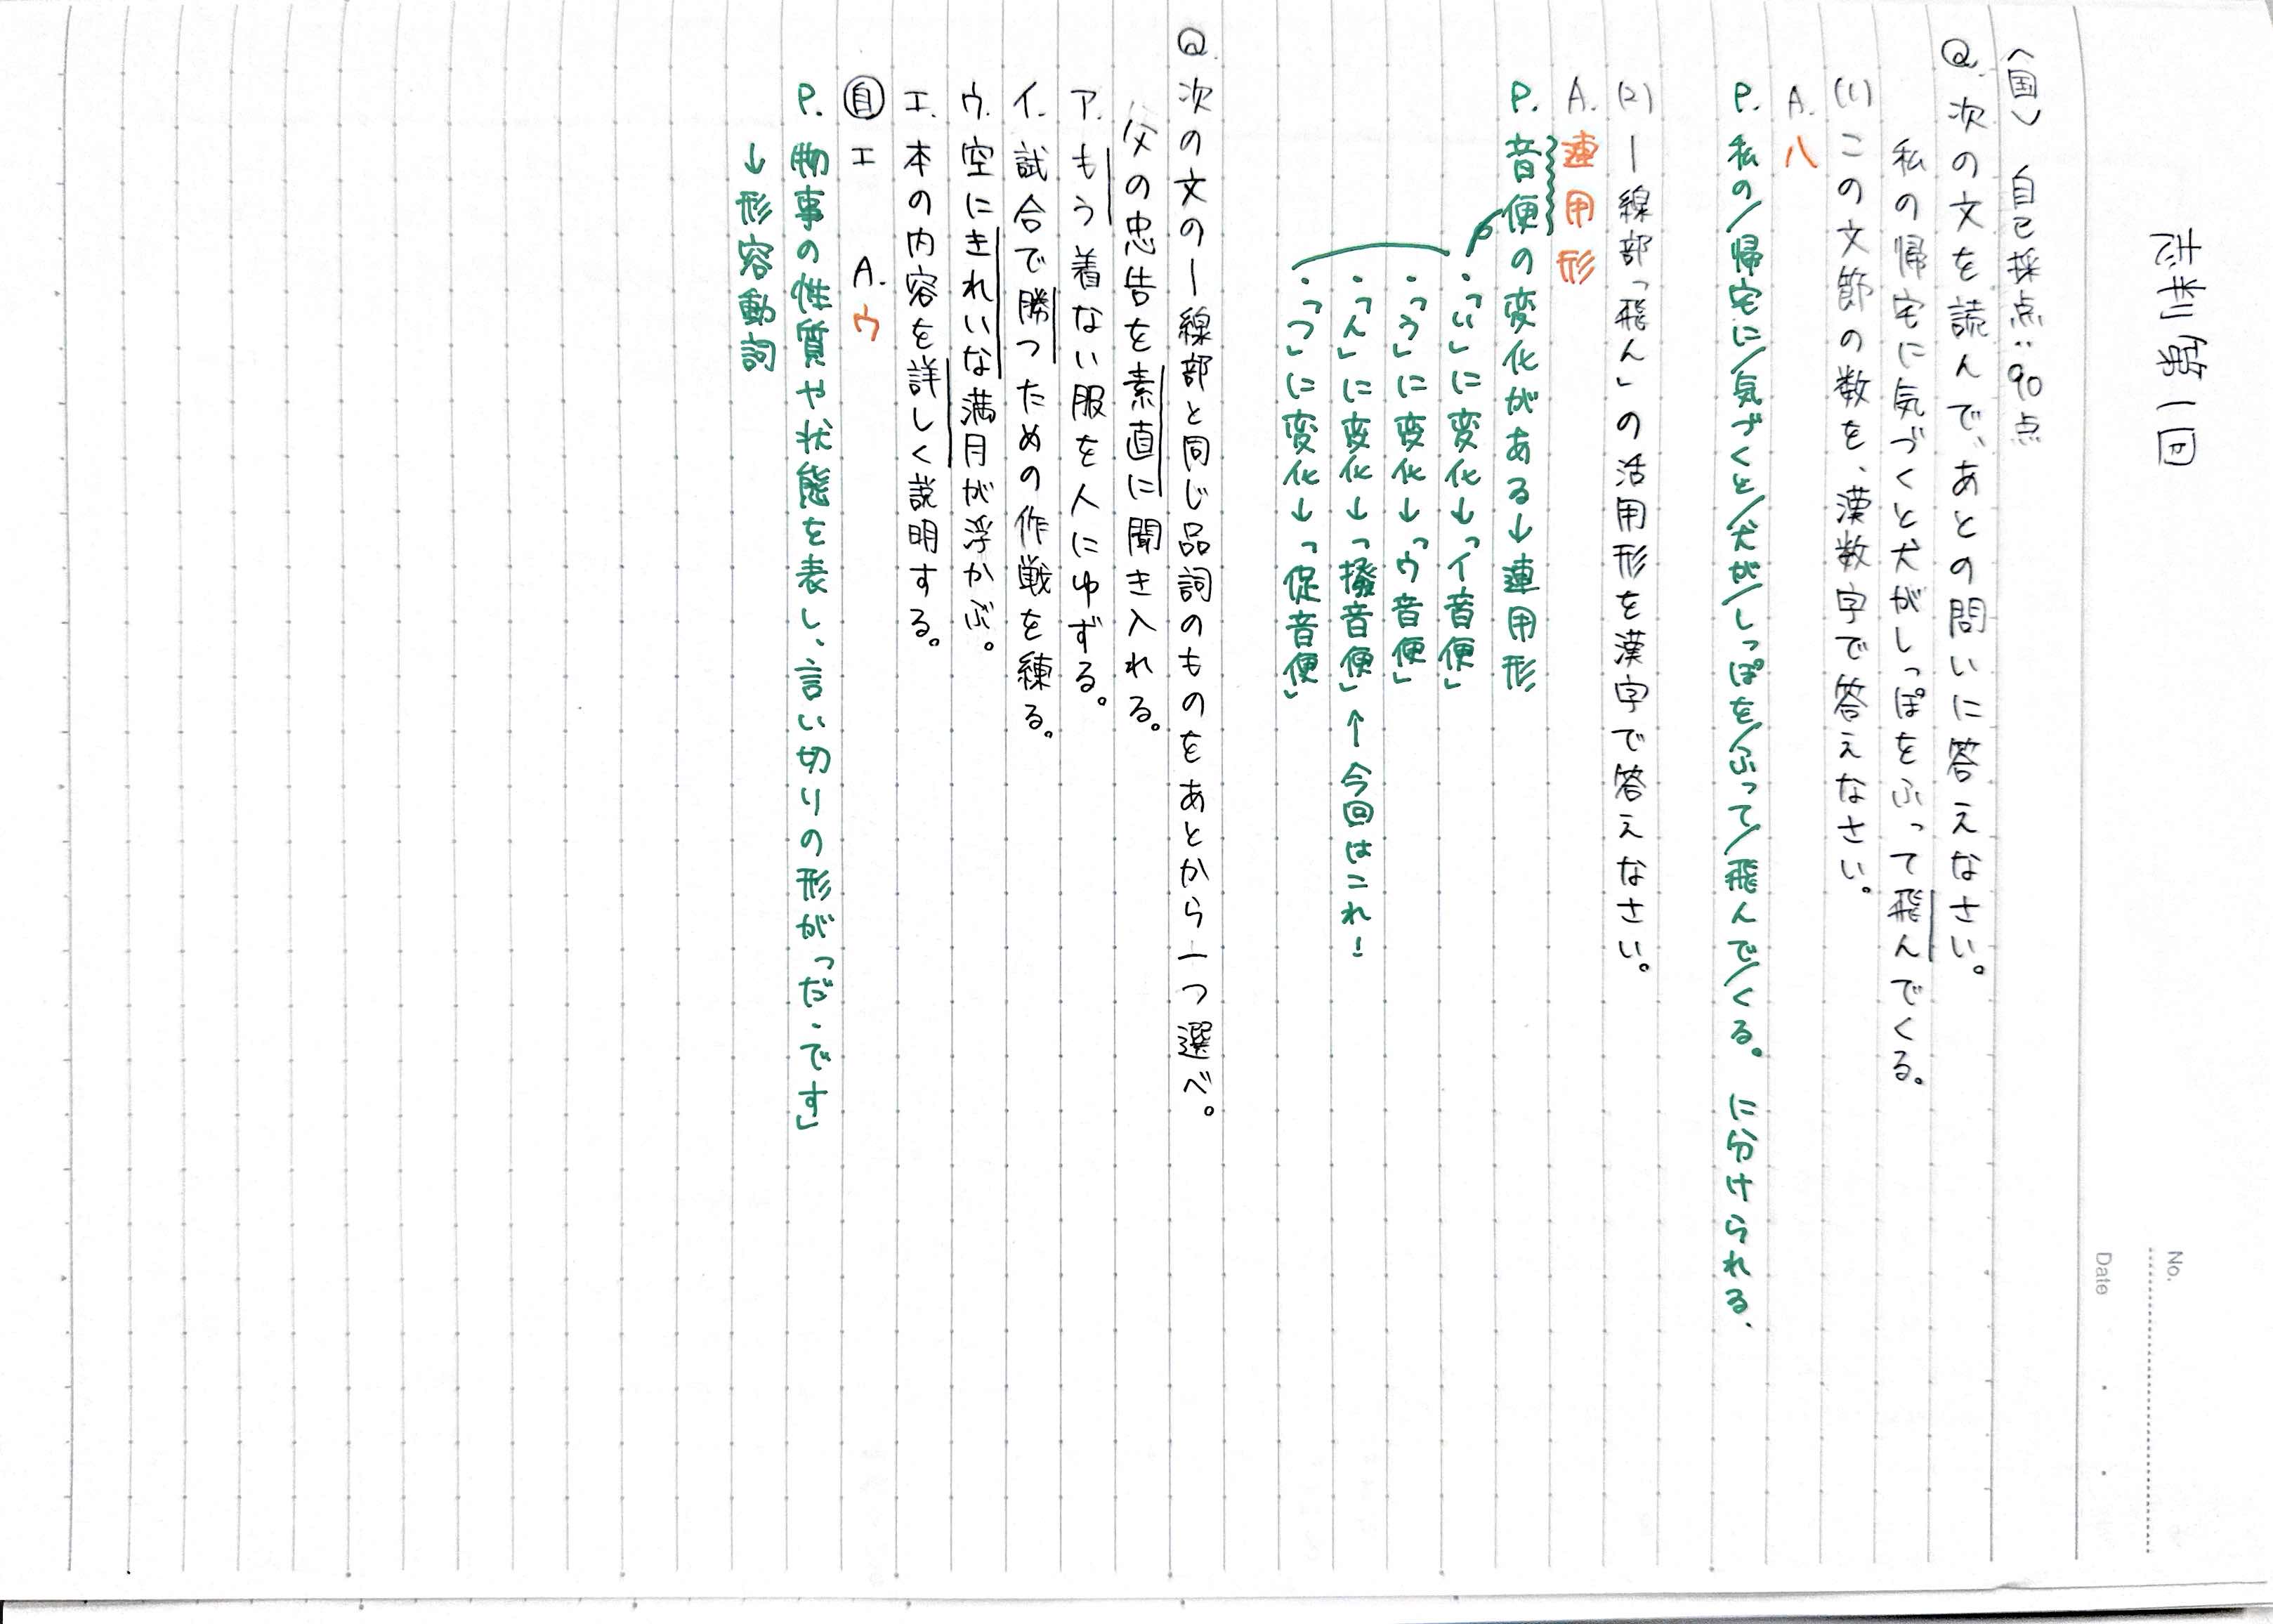 第一回
〈国〉 自己採点:90点
Q. 次の文を読んで、あとの問いに答えなさい。
私の帰宅に気づくと犬がしっぽをふって飛んでくる。
(1) この文節の数を、漢数字で答えなさい。
A. 八
P. 私の/帰宅に/気づくと/犬が/しっぽを/ふって/飛んで/くる。 に分けられる.
(2) ー線部「飛ん」の活用形を漢字で答えなさい。
A. 連用形
P. 音便の変化がある→連用形
・「い」に変化→「イ音便」
・「う」に変化→「ウ音便」
・「ん」に変化→「撥音便」←今回はこれ!
・「っ」に変化→「促音便」
Q. 次の文のー線部と同じ品詞のものをあとから一つ選べ。
父の忠告を素直に聞き入れる。
ア. もう着ない服を人にゆずる。
イ. 試合で勝つための作戦を練る。
ウ. 空にきれいな満月が浮かぶ。
エ. 本の内容を詳しく説明する。
自 エ A. ウ
P. 物事の性質や状態を表し、言い切りの形が「だ・です」
→形容動詞
No.
Date